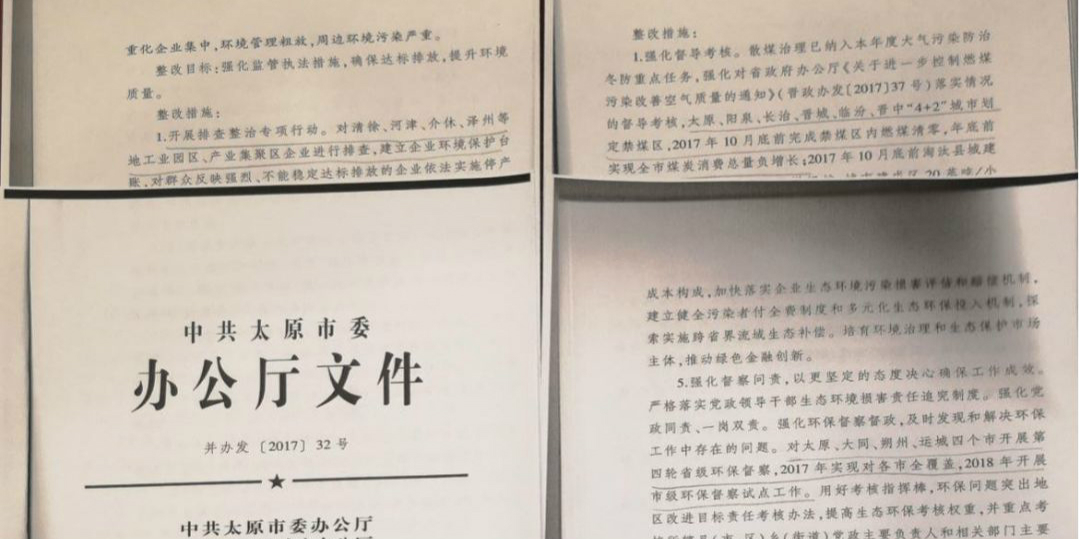 重化企业集中,环境管理粗放,周边环境污染严重。
整改目标:强化监管执法措施,确保达标排放,提升环境
质量。
整改措施:
1.开展排查整治专项行动。对清徐、河津、介休、泽州等
地工业园区、产业集聚区企业进行排查,建立企业环境保护台
账、对群众反映强烈、不能稳定达标排放的企业依法实施停产
整改措施:
1.强化督导考核。散煤治理已纳入本年度大气污染防治
冬防重点任务,强化对省政府办公厅《关于进一步控制燃煤
污染改善空气质量的通知》(晋政办发〔2017〕37号)落实情况
的督导考核,太原、阳泉、长治、晋城、临汾、晋中“4+2”城市划
定禁煤区,2017年10月底前完成禁煤区内燃煤清零,年底前
实现全市煤炭消费总量负增长;2017年10月底前淘汰县城建
20蒸吨/小
中共太原市委
办公厅文件
并办发〔2017〕32号
中共太原市委办公厅
成本构成,加快落实企业生态环境污染损害评估和赔偿机制,
建立健全污染者付全费制度和多元化生态环保投入机制,探
索实施跨省界流域生态补偿。培育环境治理和生态保护市场
主体,推动绿色金融创新。
5.强化督察问责,以更坚定的态度决心确保工作成效。
严格落实党政领导干部生态环境损害责任追究制度。强化党
政同责、一岗双责。强化环保督察督政,及时发现和解决环保
工作中存在的问题。对太原、大同、朔州、运城四个市开展第
四轮省级环保督察,2017年实现对各市全覆盖,2018年开展
市级环保督察试点工作。用好考核指挥棒,环保问题突出地
区改进目标责任考核办法,提高生态环保考核权重,并重点考
(市、区)乡(街道)党政主要负责人和相关部门主要